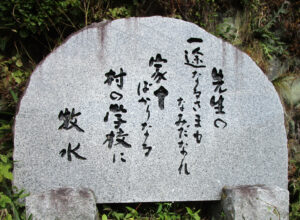 先生の
一途なるさまも
なみだなれ
家十
ばかりなる
村の学校に
牧水